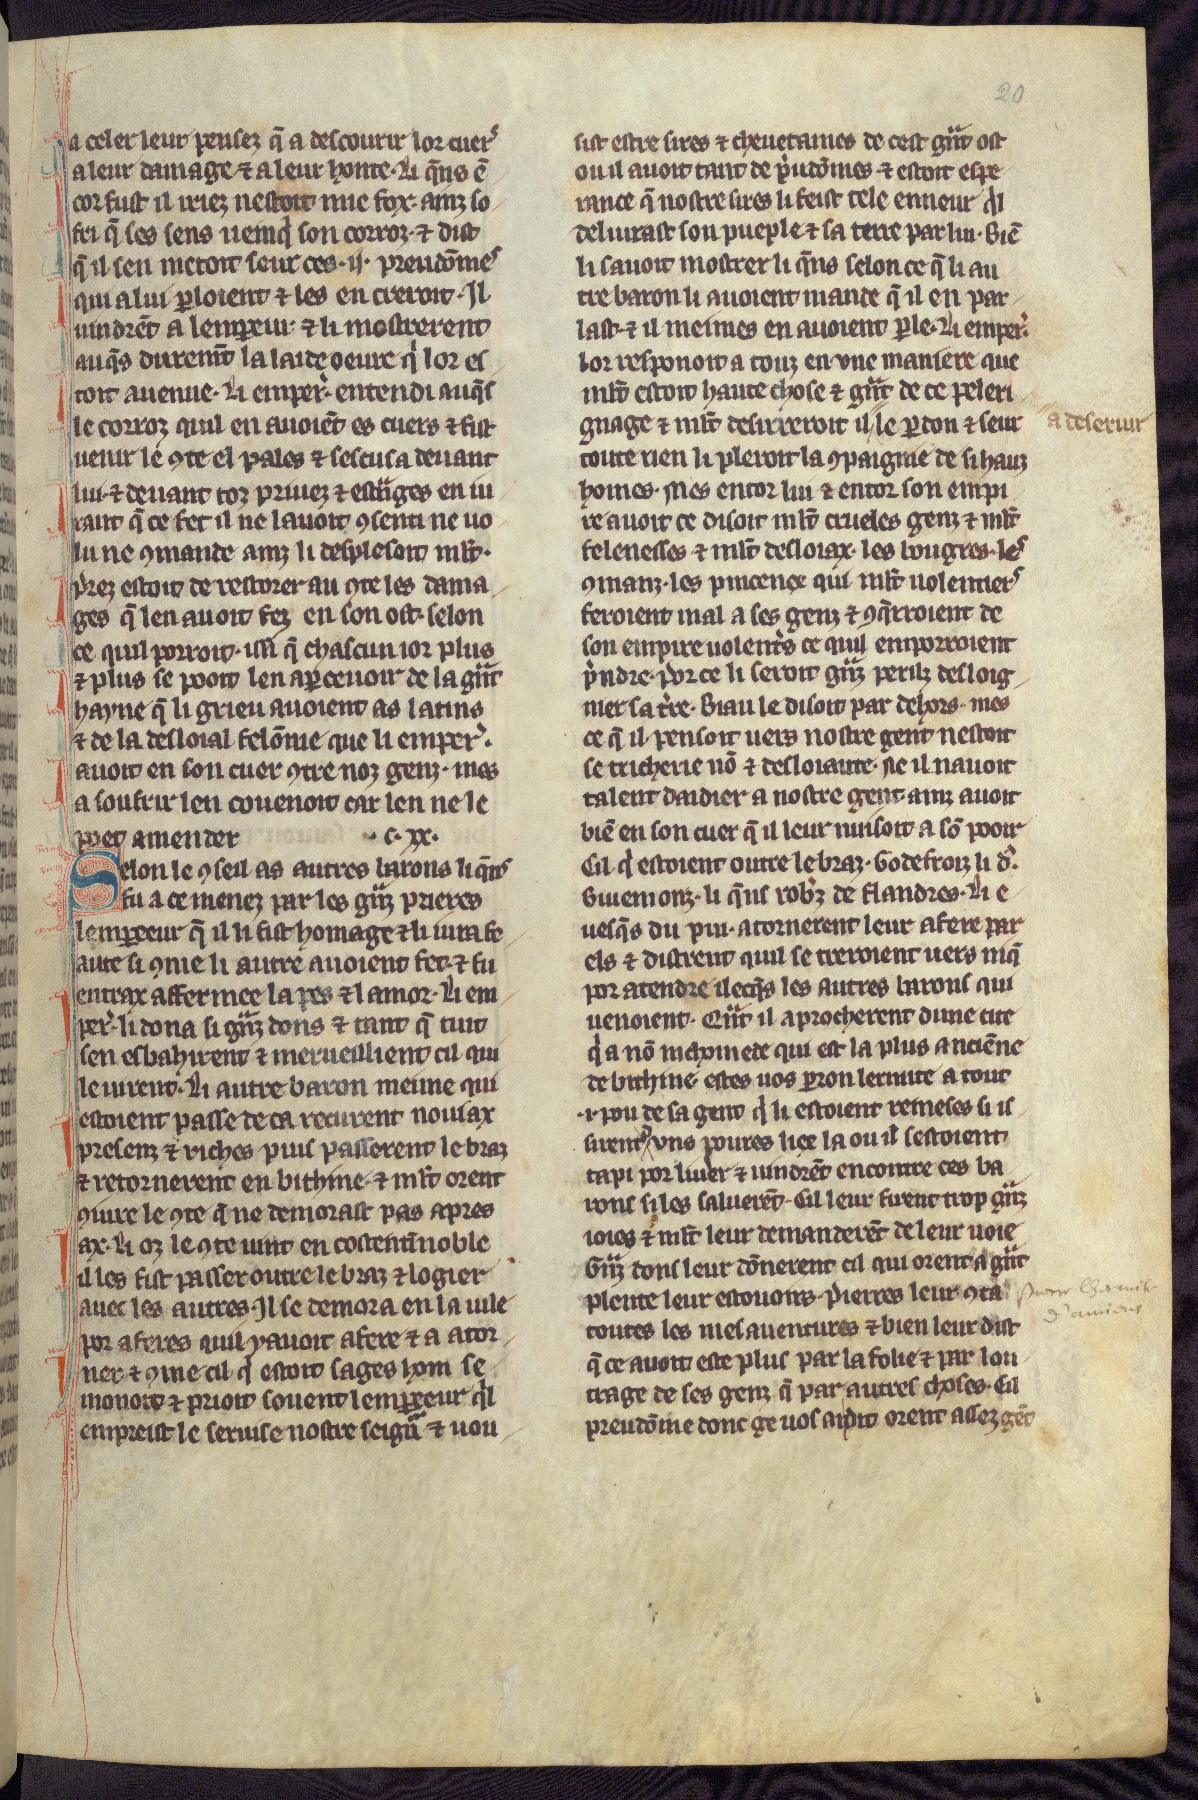 20
a celer leur pensez q̄ a descourir lor cuers
a leur damage ⁊ a leur honte. Li q̄ns ē
cor fust il iriez nestoit mie fox. ainz so
fri q̄ ses sens uenq̄ son corroz. ⁊ dist
q̄ il sen metoit seur ces .ij. preudōmes
qui a lui ꝑloient ⁊ les en creroit. Il
uindrēt a lemꝑeur. ⁊ li mostrerent
auq̄s durem̄t la laide oeure q̄ lor es
toit auenue. Li emper̄. entendi auq̄s
le corroz quil en auoiēt es cuers ⁊ fist
uenir le ꝯte el pales ⁊ sescusa deuant
lui. ⁊ deuant toz priuez ⁊ est̃nges en iu
rant q̄ ce fet il ne lauoit ꝯsenti ne uo
lu ne ꝯmande ainz li desplesoit ml̄t.
p̃rez estoit de restorer au ꝯte les dama
ges q̄ len auoit fez en son ost. selon
ce quil porroit. issi q̄ chascun ior plus
⁊ plus se pooit len aꝑceuoir de la gr̃nt
hayne q̄ li grieu auoient as latins
⁊ de la desloial felōnie que li emper̄.
auoit en son cuer ꝯtre noz genz. mes
a soufrir len couenoit car len ne le
poet amender .c.xx.
Selon le ꝯseil as autres barons li q̄ns
fu a ce menez par les gr̃nz prieres
lempereeur q̄ il li fist homage ⁊ li iura fe
aute si ꝯme li autre auoient fet. ⁊ fu
entrax affermee la pes ⁊ lamor. Li em
per̄. li dona si gr̃nz dons ⁊ tant q̄ tuit
sen esbahirent ⁊ merueillient cil qui
le uirent. Li autre baron meime qui
estoient passe de ca recurent nouiax
presenz ⁊ riches puis passerent le braz
⁊ retornerent en bithine. ⁊ ml̄t orent
ꝯiure le ꝯte q̄ ne demorast pas apres
ax. Li oz le ꝯte uint en costentīnoble
il les fist passer outre le braz ⁊ logier
auec les autres. Il se demora en la uile
por aferes quil y auoit a fere ⁊ a ator
ner. ⁊ ꝯme cil q̄ estoit sages hom se
monoit ⁊ prioit souent lempereeur q̄l
empreist le seruise nostre seign̄r ⁊ uou
sist estre sires ⁊ cheuetaines de cest gr̃nt ost
ou il auoit tant de p̃udōmes. ⁊ estoit espe
rance q̄ nostre sires li feist tele enneur q̄l
deliurast son pueple ⁊ sa terre par lui. Biē
li sauoit mostrer li q̄ns selon ce q̄ li au
tre baron li auoient mande q̄ il en par
last. ⁊ il meimes en auoient ꝑle. Li emper̄.
lor responoit a touz en vne maniere que
ml̄t estoit haute chose ⁊ gr̃nt de ce peleri
gnage ⁊ ml̄t desirreroit il le ꝑdon ⁊ seur
a deseruir
toute rien li pleroit la ꝯpaignie de si hauz
homes. Mes entor lui ⁊ entor son empi
re auoit ce disoit ml̄t crueles genz ⁊ ml̄t
felenesses ⁊ ml̄t desloiax. les bougres. les
ꝯmanz. les pincenex qui ml̄t uolentiers
feroient mal a ses genz ⁊ ꝯq̄rroient de
son empire uolent̄s ce quil emporroient
p̃ndre. Por ce li seroit gr̃nz perilz desloig
nier sa t̄re. Biau le disoit par dehors. mes
ce q̄ il pensoit uers nostre gent nestoit
se tricherie nō ⁊ desloiaute. Ne il nauoit
talent daidier a nostre gent. ainz auoit
biē en son cuer q̄ il leur nuisoit a sō pooir
Cil q̄ estoient outre le braz. Godefroiz li d̄.
Buiemonz. li q̄ns rob̄z de flandres. Li e
uesq̄s du pui. atornerent leur afere par
els ⁊ distrent quil se treroient uers niq̄
por atendre ilecq̄s les autres barons qui
uenoient. Qn̄t il aprocherent dune cite
q̄ a nō nichomede qui est la plus anciēne
de bithine. estes uos ꝑron lermite a tout
.i. pou de sa gent q̄ li estoient remeses si is
sirent duns poures liex la ou il sestoient
tapi por liuer ⁊ uindrēt encontre ces ba
rons si les saluerēt. Cil leur firent trop gr̃nz
ioies ⁊ ml̄t leur demanderēt de leur uoie
Gr̃nz dons leur dōnerent cil qui orent a gr̃nt
plente leur estouoirs. Pierres leur ꝯta
toutes les mesauentures ⁊ bien leur dist
q̄ ce auoit este plus par la folie ⁊ par lou
trage de ses genz q̄ par autres choses. Cil
preudōme donc ge uos ai dit orent assez gēt